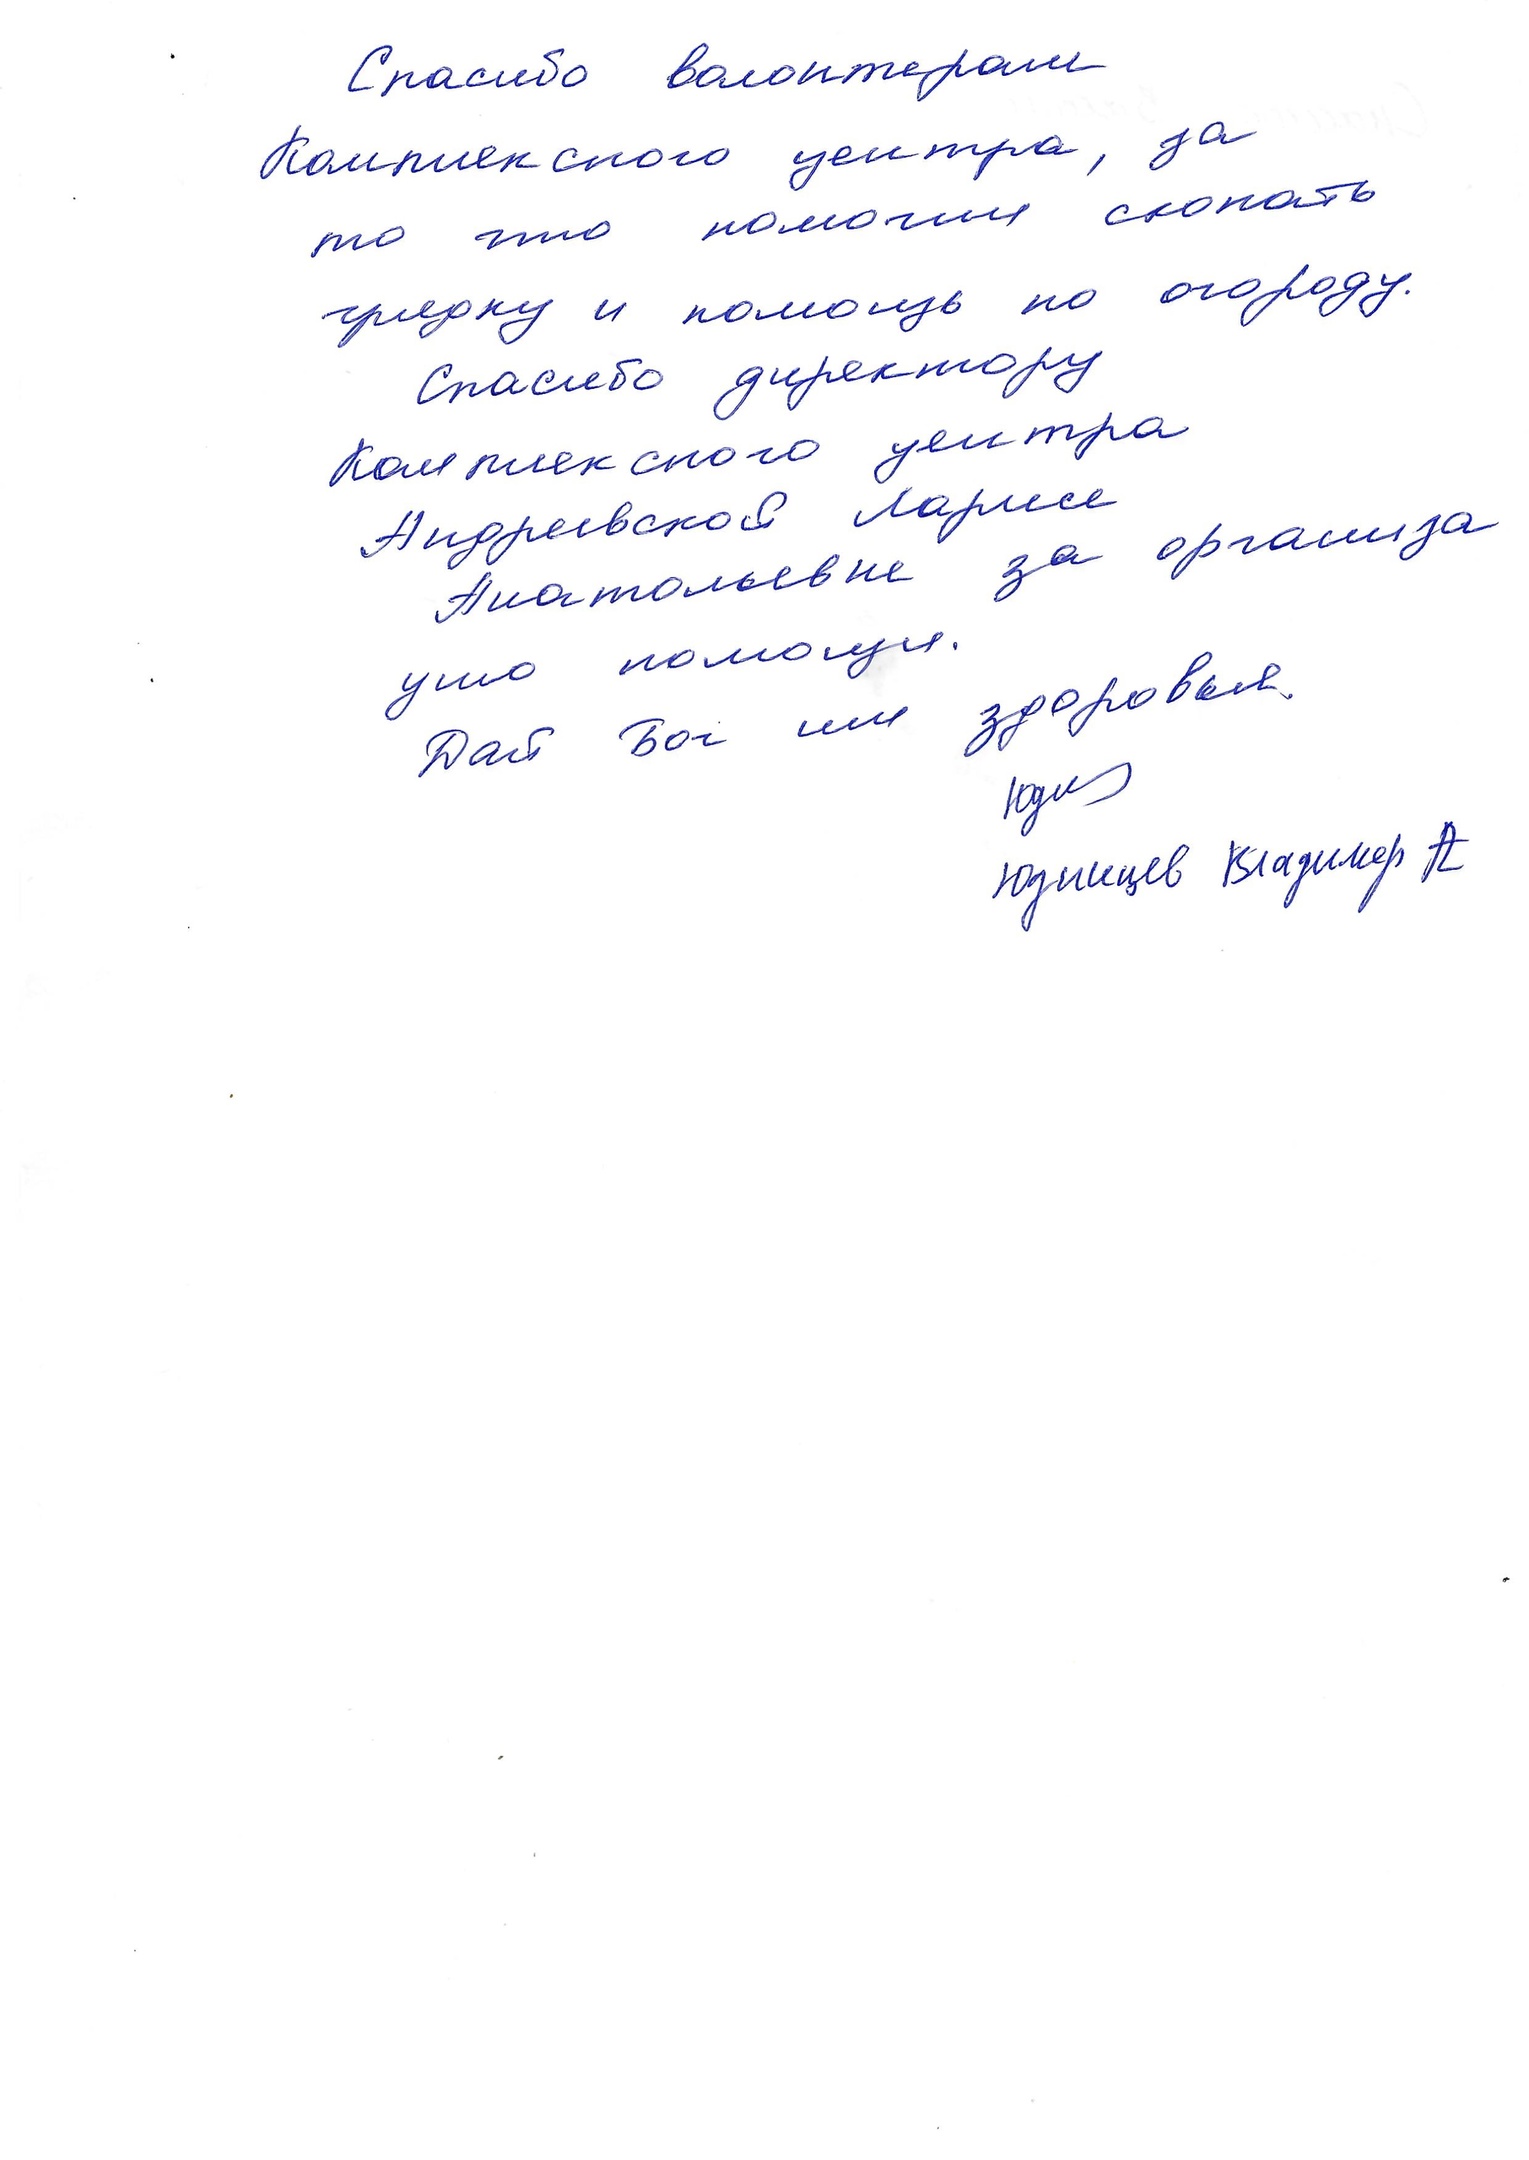 Спасибо волонтерам
Комплексного центра, за
то что помогли скопать
грядку и помощь по огороду.
Спасибо директору
Комплексного центра
Андреевской Ларисе
Анатольевне за организа
цию помощи.
Дай Бог им здоровья.
Юдин
Юдинцев Владимер А